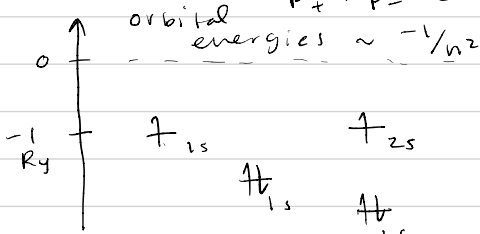 orbital
energies ~ -1/n²
0
-1
Ry
2s
2s
1s